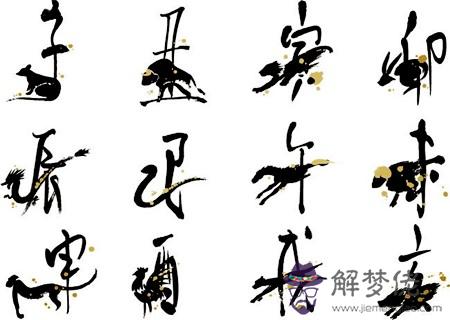 子 丑 寅 卯
辰 巳 午 未
申 酉 戌 亥
解梦佬